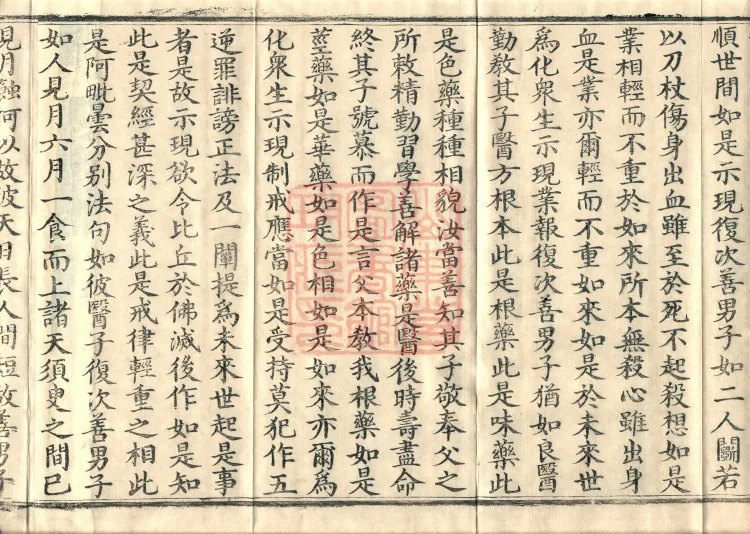 順世間如是示現復次善男子如二人鬭若
以刀杖傷身出血雖至於死不起殺想如是
業相輕而不重於如來所本無殺心雖出身
血是業亦爾輕而不重如來如是於未來世
爲化衆生示現業報復次善男子猶如良醫
勤教其子醫方根本此是根藥此是味藥此
是色藥種種相貌汝當善知其子敬奉父之
所敕精勤習學善解諸藥是醫後時壽盡命
終其子號慕而作是言父本教我根藥如是
莖藥如是華藥如是色相如是如來亦爾爲
化衆生示現制戒應當如是受持莫犯作五
逆罪誹謗正法及一闡提爲未來世起是事
者是故示現欲令比丘於佛滅後作如是知
此是契經甚深之義此是戒律輕重之相此
是阿毗曇分別法句如彼醫子復次善男子
如人見月六月一食而上諸天須臾之間已
見月蝕何以故彼天日長人間短故善男子